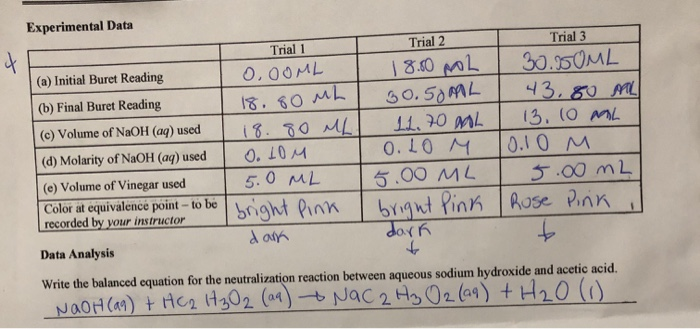 Experimental Data
Trial 1 Trial 2 Trial 3
(a) Initial Buret Reading 0.00ML 18.80 ML 30.550ML
(b) Final Buret Reading 18.80 ML 30.50ML 43.80 ML
(c) Volume of NaOH (aq) used 18.80 ML 11.70 ML 13.10 ML
(d) Molarity of NaOH (aq) used 0.10M 0.10 M 0.10 M
(e) Volume of Vinegar used 5.0 ML 5.00 ML 5.00 mL
Color at equivalence point – to be bright Pink bright Pink Rose Pink
recorded by your instructor
dark dark
Data Analysis
Write the balanced equation for the neutralization reaction between aqueous sodium hydroxide and acetic acid.
NaOH(aq) + HC2H3O2 (aq) → NaC2H3O2(aq) + H2O (l)